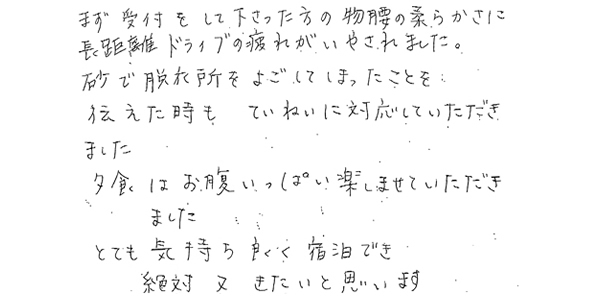 まず受付をして下さった方の物腰の柔らかさに
長距離ドライブの疲れがいやされました。
砂で脱衣所をよごしてしまったことを
伝えた時も ていねいに対応していただき
ました
夕食はお腹いっぱい楽しませていただき
ました
とても気持ち良くく宿泊でき
絶対又きたいと思います